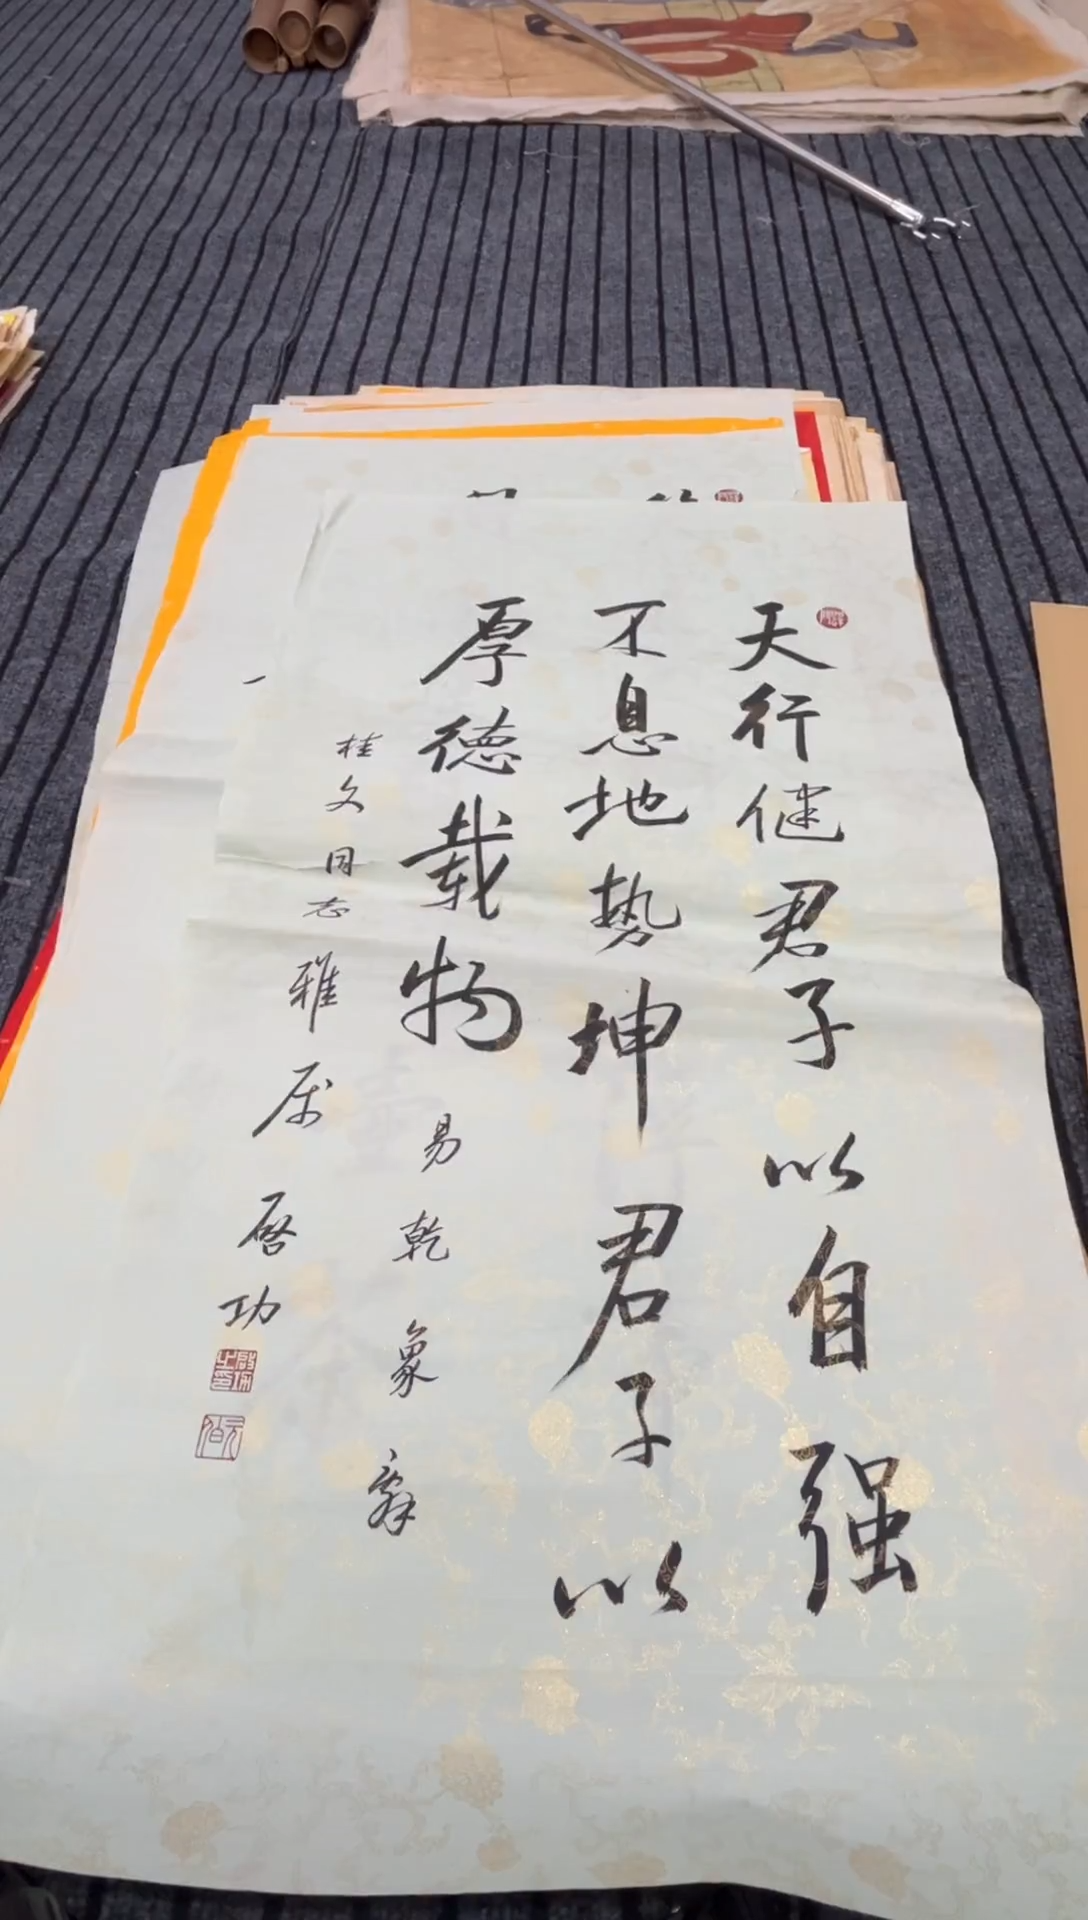 天行健君子以自强
不息地势坤君子以
厚德载物易乾象辞
桂文同志雅属启功
启功之印
元白